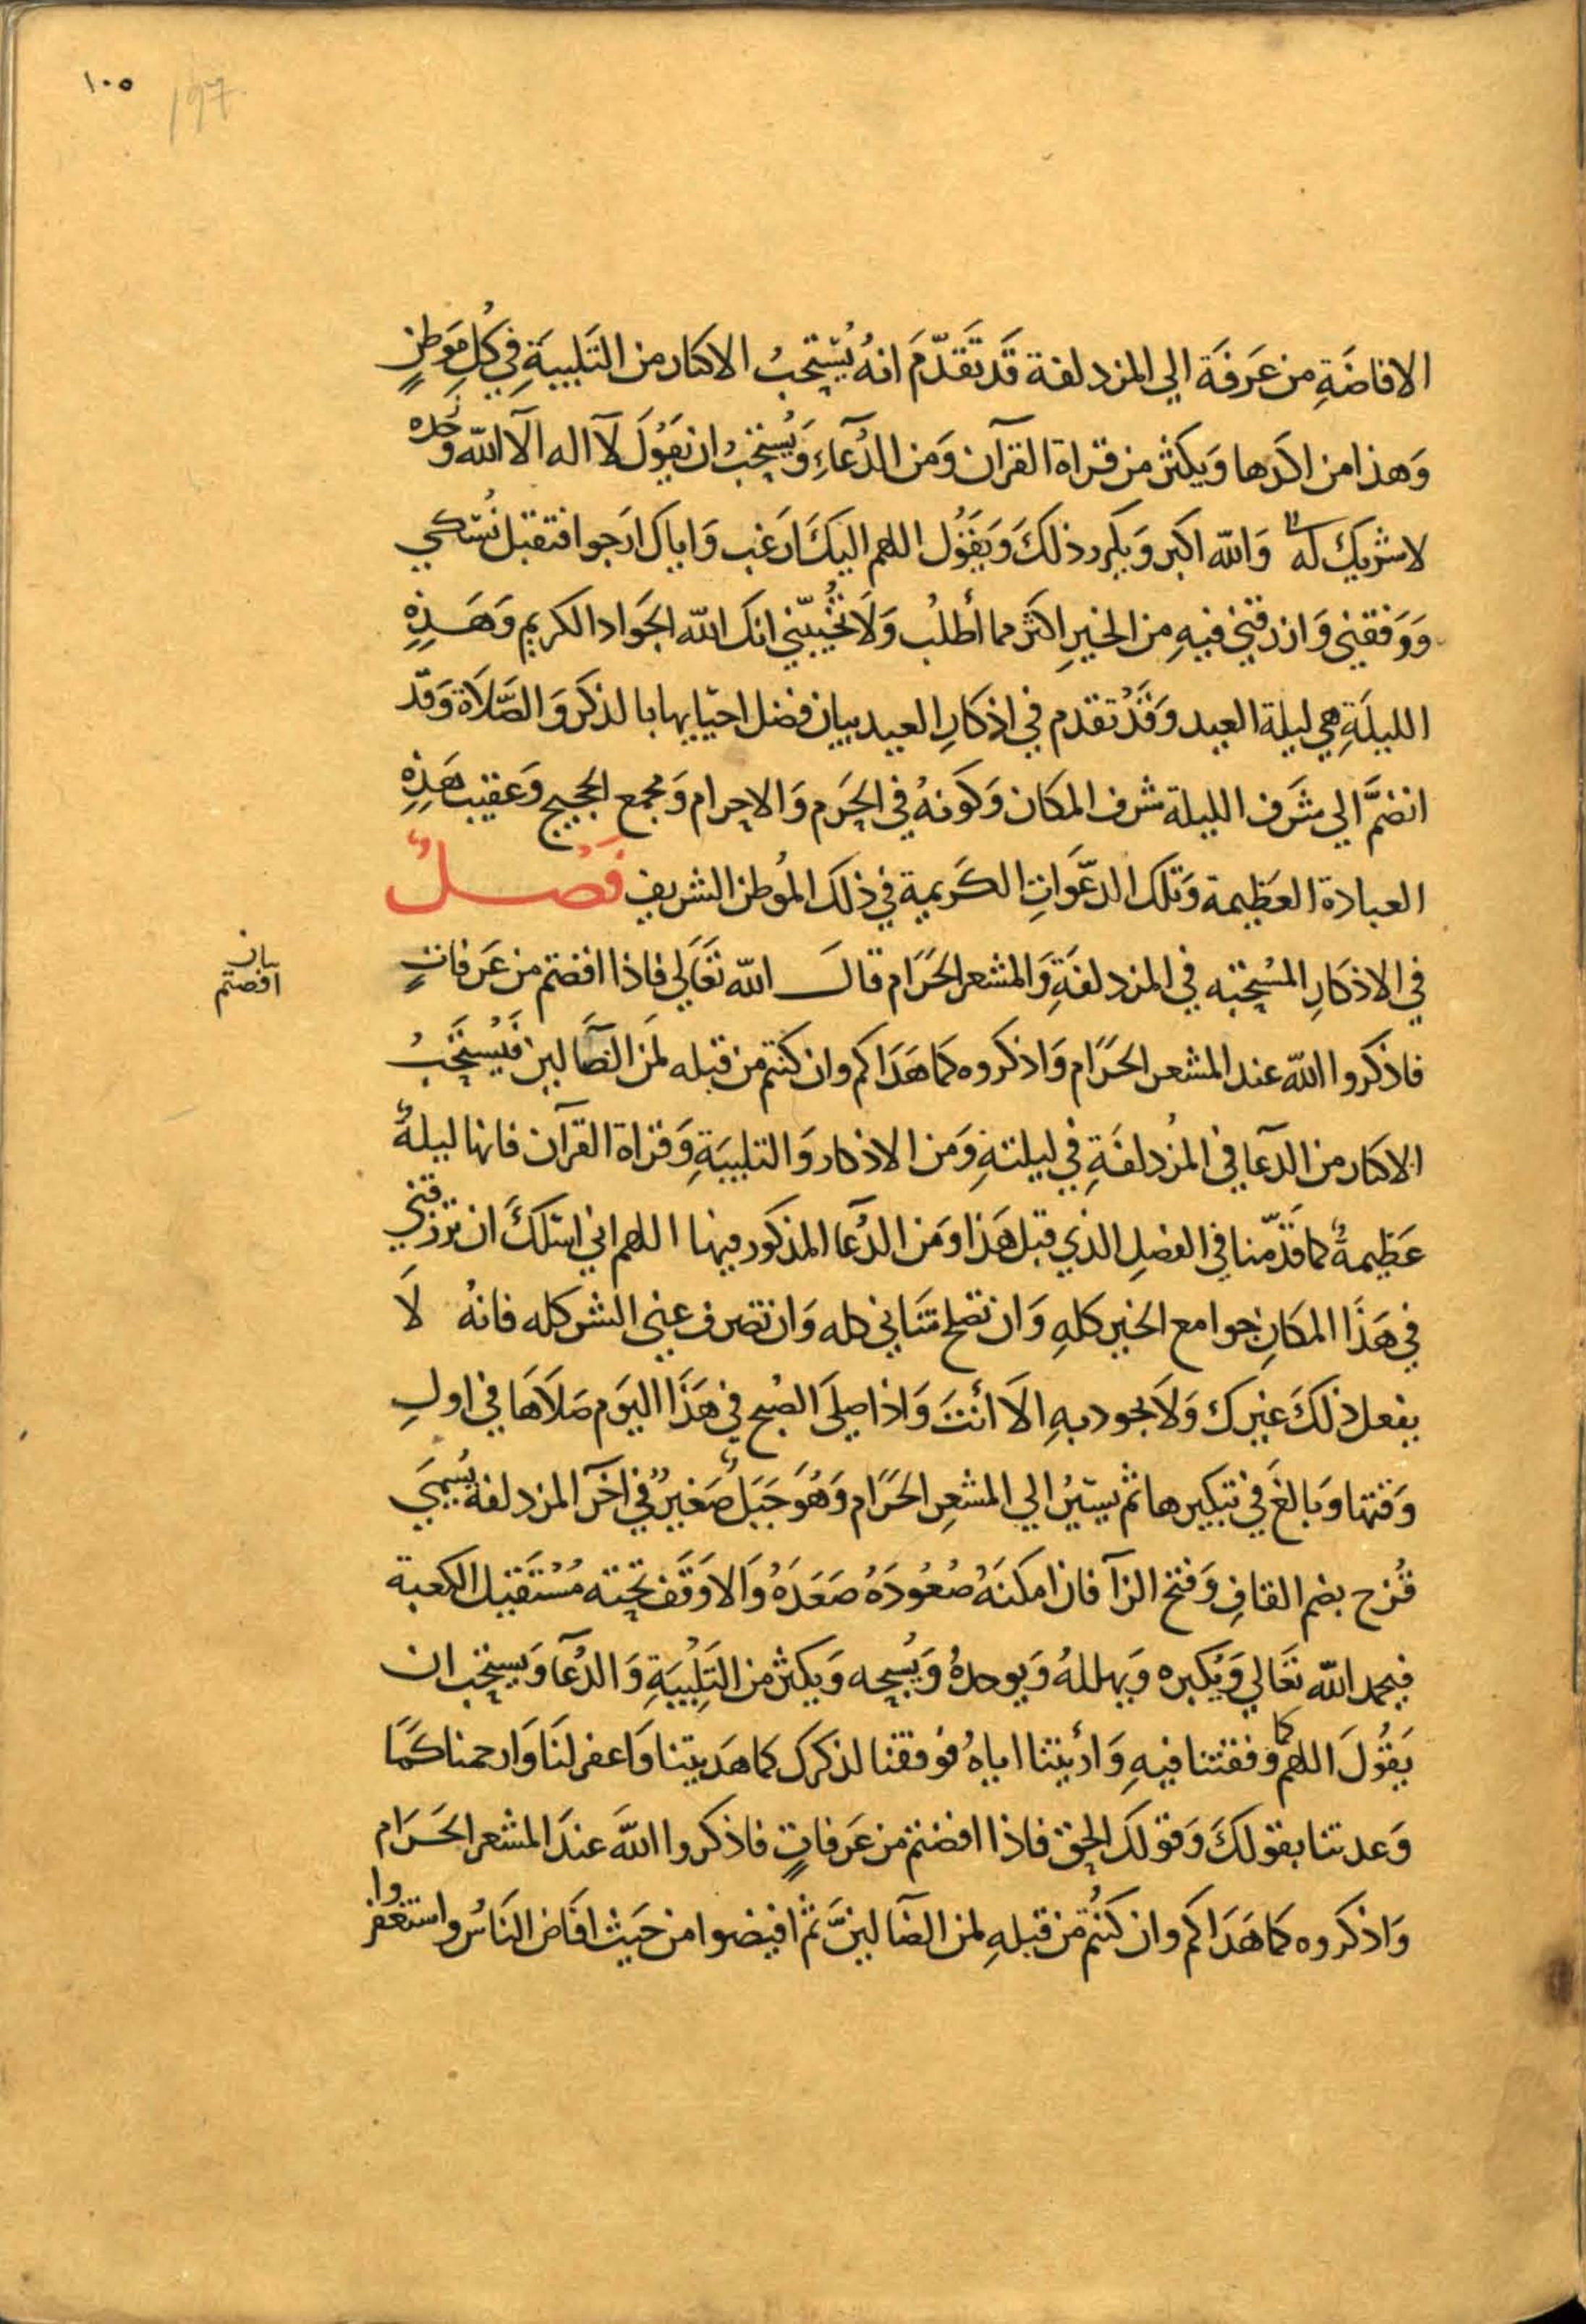 ١٠٥
197
الافاضَةِ من عَرَفَة الي المزدلفة قَد تَقَدّمَ انهُ يُسْتحبُ الاكثار من التَلبيَةِ في كُلِ مَوَطنٍ
وَهذا من اكَدها وَيكثر من قراة القرآن وَمن الدُعآءِ وَيُستحبُ ان يَقوُلَ لآ اله الآ الله وَحده
لاشريك له وَالله اكبر وَيكرر ذلكَ وَيَقوُل اللهم اليكَ ارَغب وَاياك ارَجوا فتقبل نُسُكي
وَوَفقني وَارزقني فيهِ من الخيرِ اكثر مما أطلبُ وَلَا تخُيبّني انكَ الله الجَواد الكريم وَهَذِهِ
الليلَةِ هي ليلة العيد وَقَدْ تقدم في اذكارِ العيد بيان فضل احيَايها با لذكَر وَالصَّلَاة وَقد
انضمَّ الي شَرَف الليلة شرف المكان وَكَونهُ في الحَرَم وَالاحرام وَمجمع الحجيج وَعقيب هَذِهِ
العبادة العَظيمة وَتلكَ الدعَوَاتِ الكَريمية في ذلكَ المُوطن الشريف فَصْلٌ
في الاذكَارِ المسُتحَبه في المزدلفَةِ وَالمشعر الحَرَام قالَ الله تعَالَي فاذا افضتم من عَرَفاتٍ
بيان
افضتم
فاذكروا الله عند المشعر الحرَام وَاذكروه كما هَدَاكم وان كنتم من قبله لمَن الضَآلين فَيُستحَبُ
الاكثار من الدعآ في المُزدلفَةِ في ليلتهِ وَمن الاذكار وَالتلبيَةِ وَقراة القرآن فانها ليلةٌ
عَظيمةٌ كما قدّمنا في الفصلِ الذي قبل هَذا وَمَن الدُعَآ المذكور فيها اللهم اني اسَئلكَ ان ترزقني
في هَذَا المكانِ جوامع الخير كلهِ وَان تصلح شَاني كله وَان تصرف عني الشر كله فانهُ لَا
يفعل ذلكَ غيرك وَلَا يجود بهِ الَا أنتَ وَاذا صلَي الصُبح في هَذَا اليَوم صَلَاهَا في اولِ
وَقتها وَبالغَ في تبكيرها ثم يسَيرُ الي المشعِر الحَرَام وَهُوَ جَبَلٌ صَغيرٌ في اخَر المزدلفة يُسمَي
قُزح بضم القافِ وَفتح الزآ فان امكنَهُ صُعُودَهُ صَعَدَهُ وَالا وَقَف تحته مُسْتَقبل الكعبة
فيحمد الله تَعَالي وَيُكبره وَيهللهُ وَيوحدهُ وَيُسبحه وَيكثر من التَلبْيَةِ وَالدُعَآ وَيسَتحب ان
يَقُولَ اللهم كما وفقتنا فيهِ وَارُيتنا اياهُ فوَفقنا لذكرك كما هَدَيتنا وَاغفر لَنَا وَارحمنا كَمَا
وَعدتنا بقولكَ وَقولكَ الحق فاذا افضتم من عَرَفاتٍ فاذكروا اللهَ عندَ المشعر الحَرَام
وَاذكروه كما هَدَاكم وان كنتُم من قبلهِ لمن الضَآلينَ ثم افيضوا من حَيث افَاض النَاسُ واستغفروا